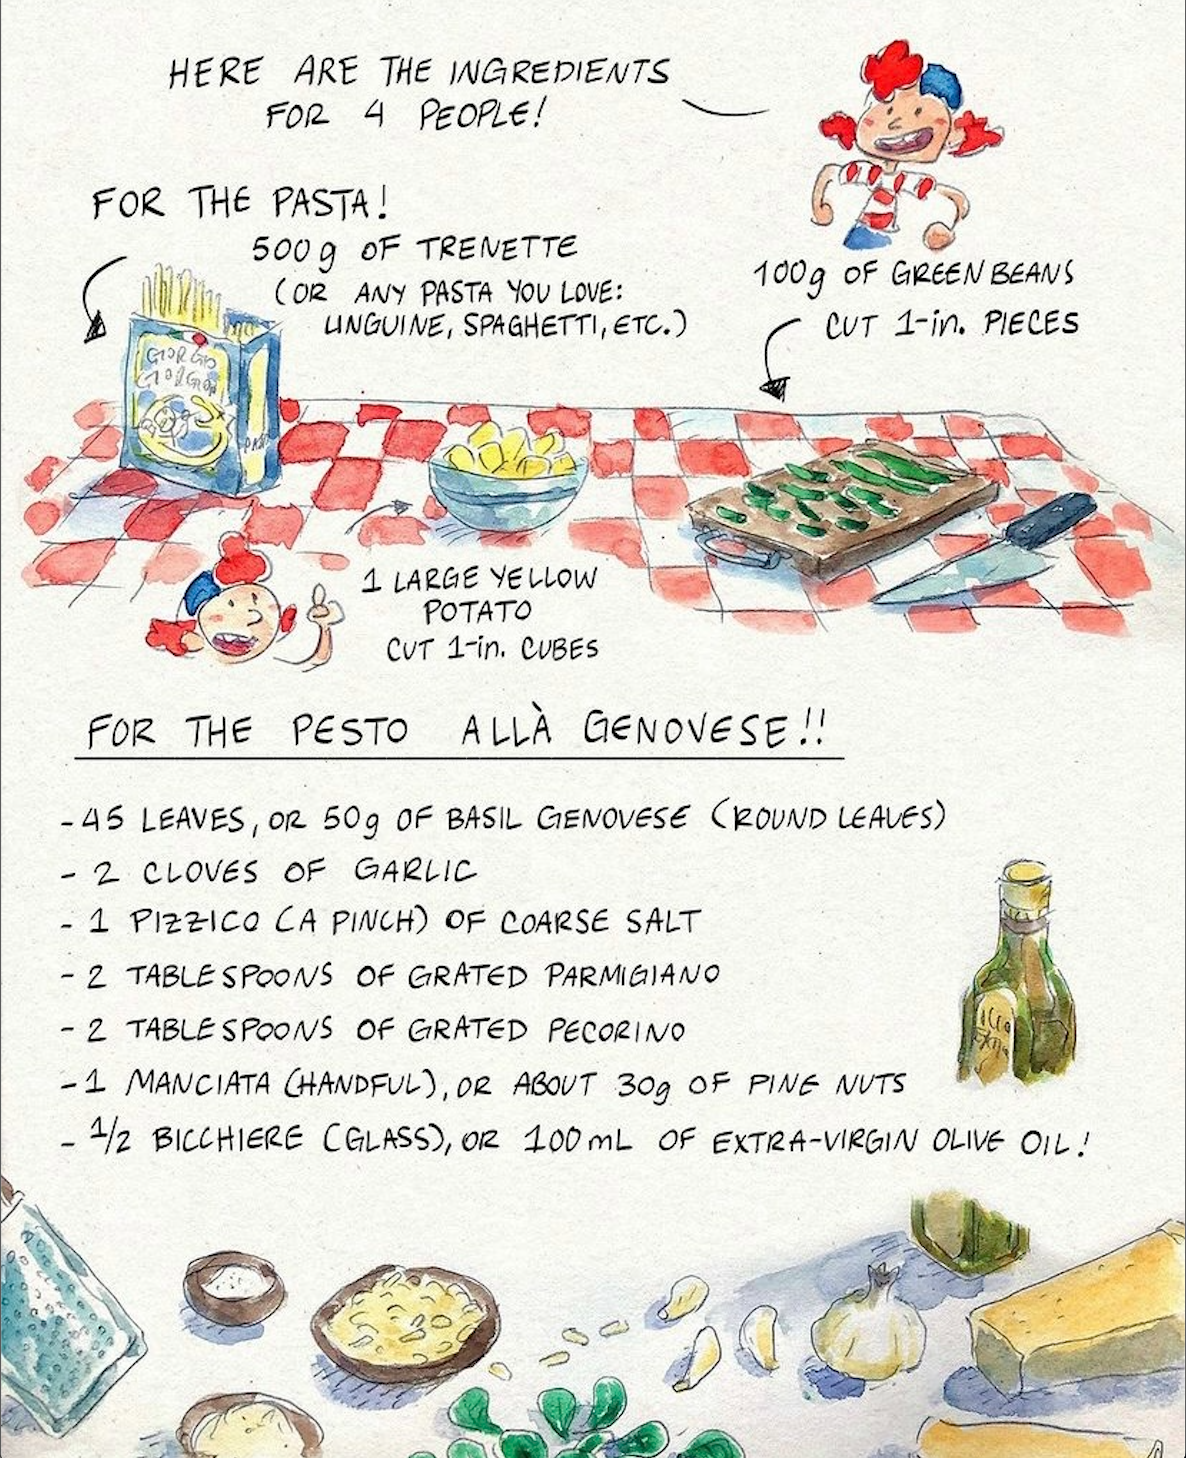 HERE ARE THE INGREDIENTS
FOR 4 PEOPLE!
FOR THE PASTA!
500g OF TRENETTE
(OR ANY PASTA YOU LOVE:
LINGUINE, SPAGHETTI, ETC.)
100g OF GREEN BEANS
CUT 1-in. PIECES
GIORGIO
GIORGIONI
1 LARGE YELLOW
POTATO
CUT 1-in. CUBES
FOR THE PESTO ALLÀ GENOVESE!!
- 45 LEAVES, OR 50g OF BASIL GENOVESE (ROUND LEAVES)
- 2 CLOVES OF GARLIC
- 1 PIZZICO (A PINCH) OF COARSE SALT
- 2 TABLESPOONS OF GRATED PARMIGIANO
- 2 TABLESPOONS OF GRATED PECORINO
- 1 MANCIATA (HANDFUL), OR ABOUT 30g OF PINE NUTS
- 1/2 BICCHIERE (GLASS), OR 100mL OF EXTRA-VIRGIN OLIVE OIL!